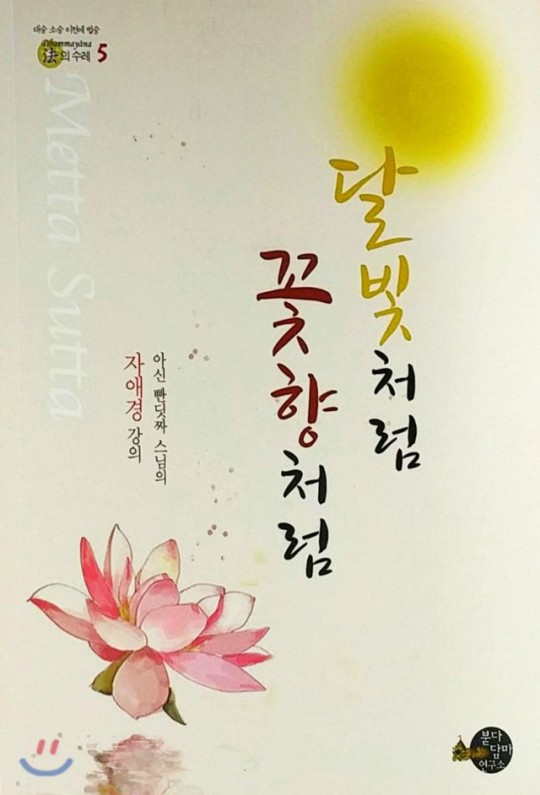 대승 소승 이전에 법승
Dhammayāna
法의 수레 5
Metta Sutta
달빛처럼
꽃향처럼
아신 빤딧짜 스님의
자애경 강의
붇다
담마
연구소